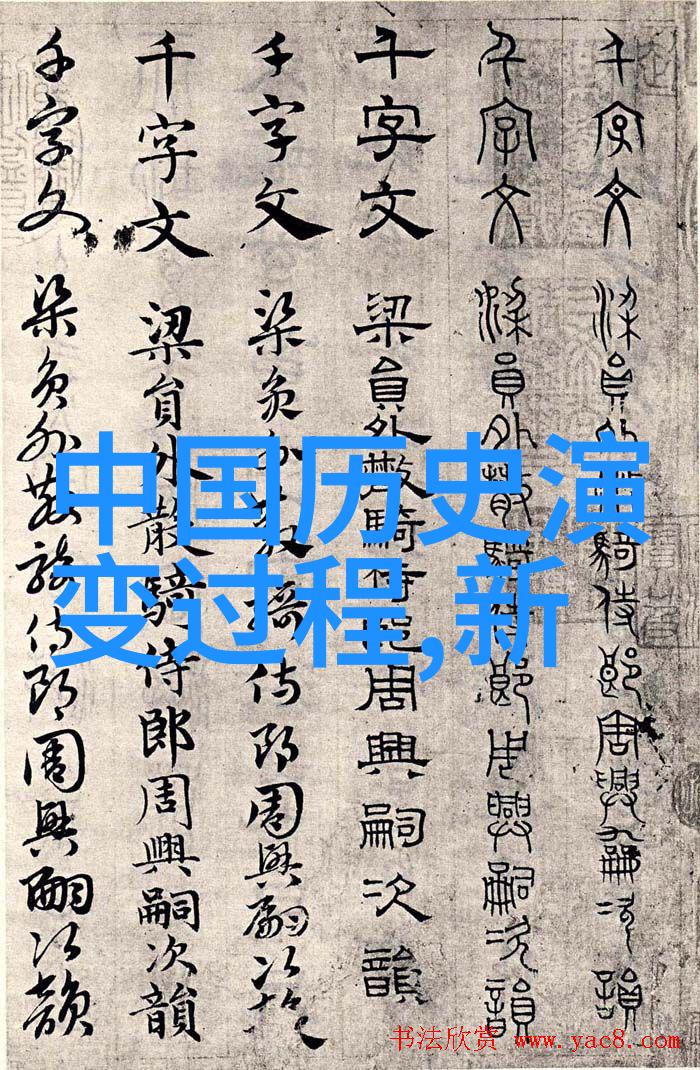 千字文 梁員外騎侍郎周興嗣次韻
千字文 梁員外散騎侍郎周興嗣次韻
千字文 梁員外散騎侍郎周興嗣次韻
千字文 梁員外散騎侍郎周興嗣次韻
千字文 梁員外散騎侍郎周興嗣次韻
千字文 梁員外散騎侍郎周興嗣次韻
中国历史演
变过程,新
书法欣赏 www.yac8.com